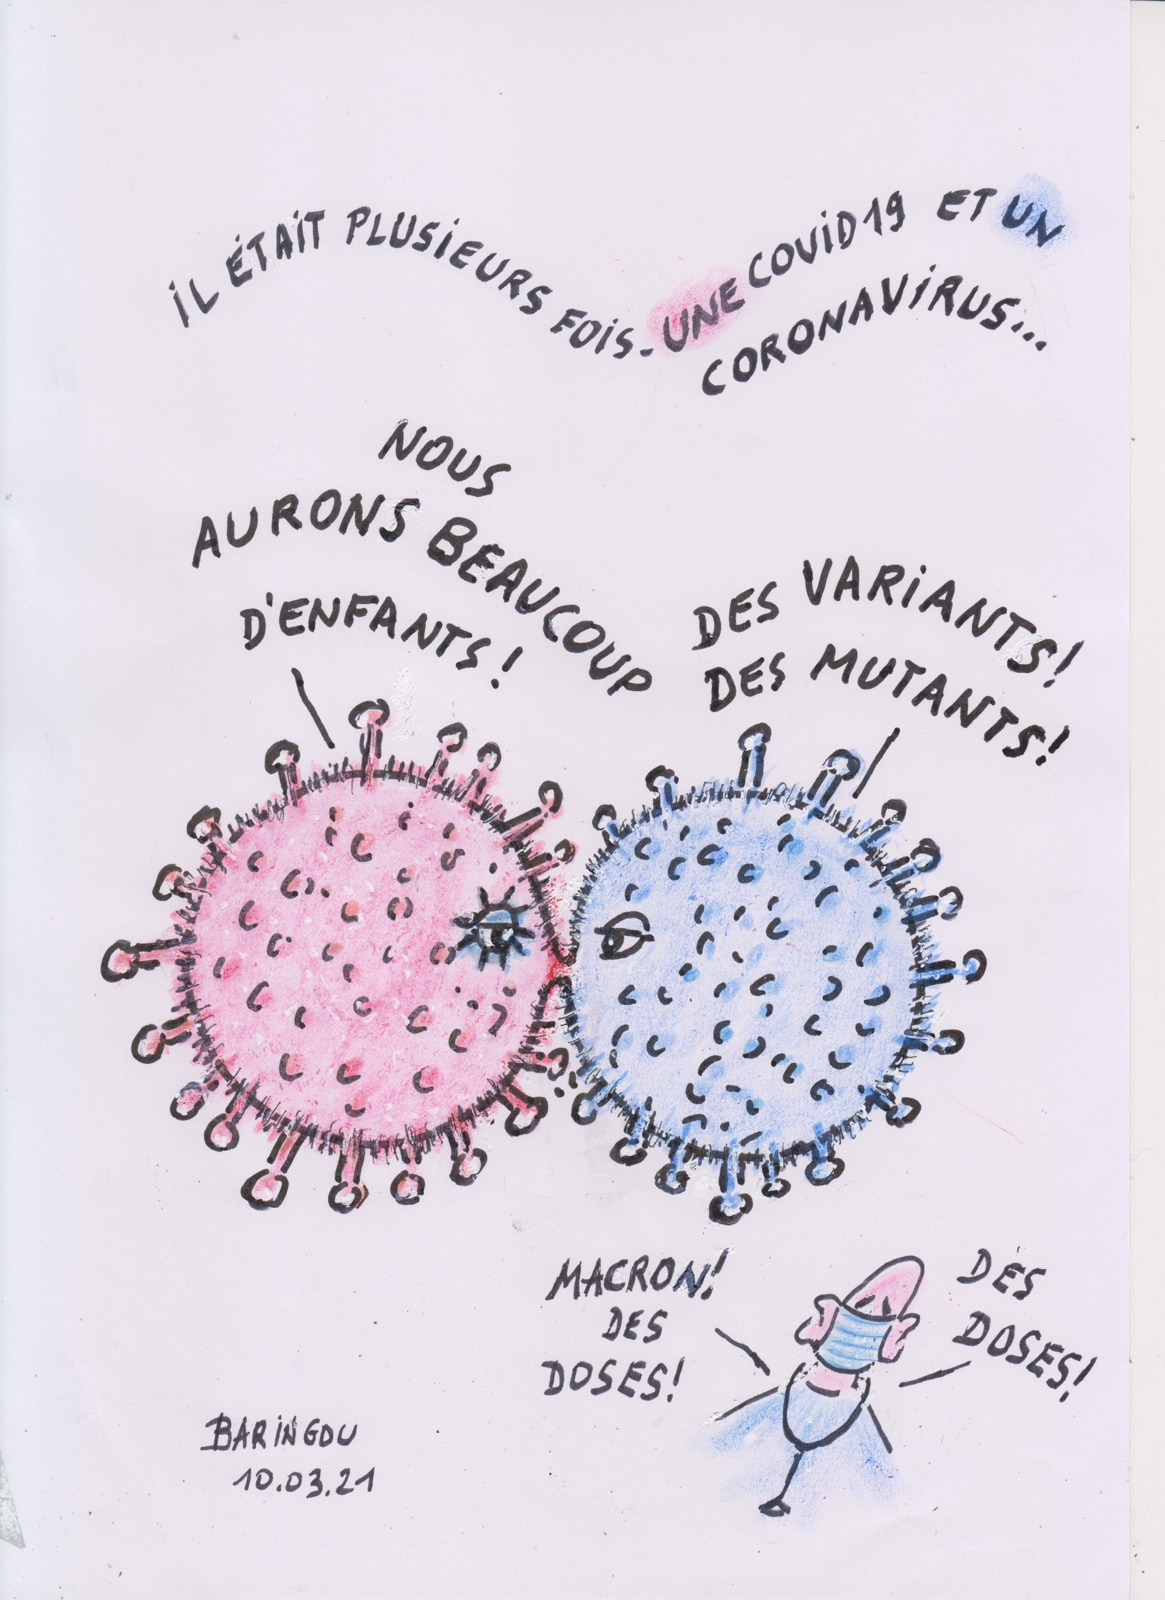 IL ÉTAIT PLUSIEURS FOIS. UNE COVID19 ET UN
CORONAVIRUS...
NOUS
AURONS BEAUCOUP
D'ENFANTS!
DES VARIANTS!
DES MUTANTS!
MACRON!
DES
DOSES!
DES
DOSES!
BARINGOU
10.03.21